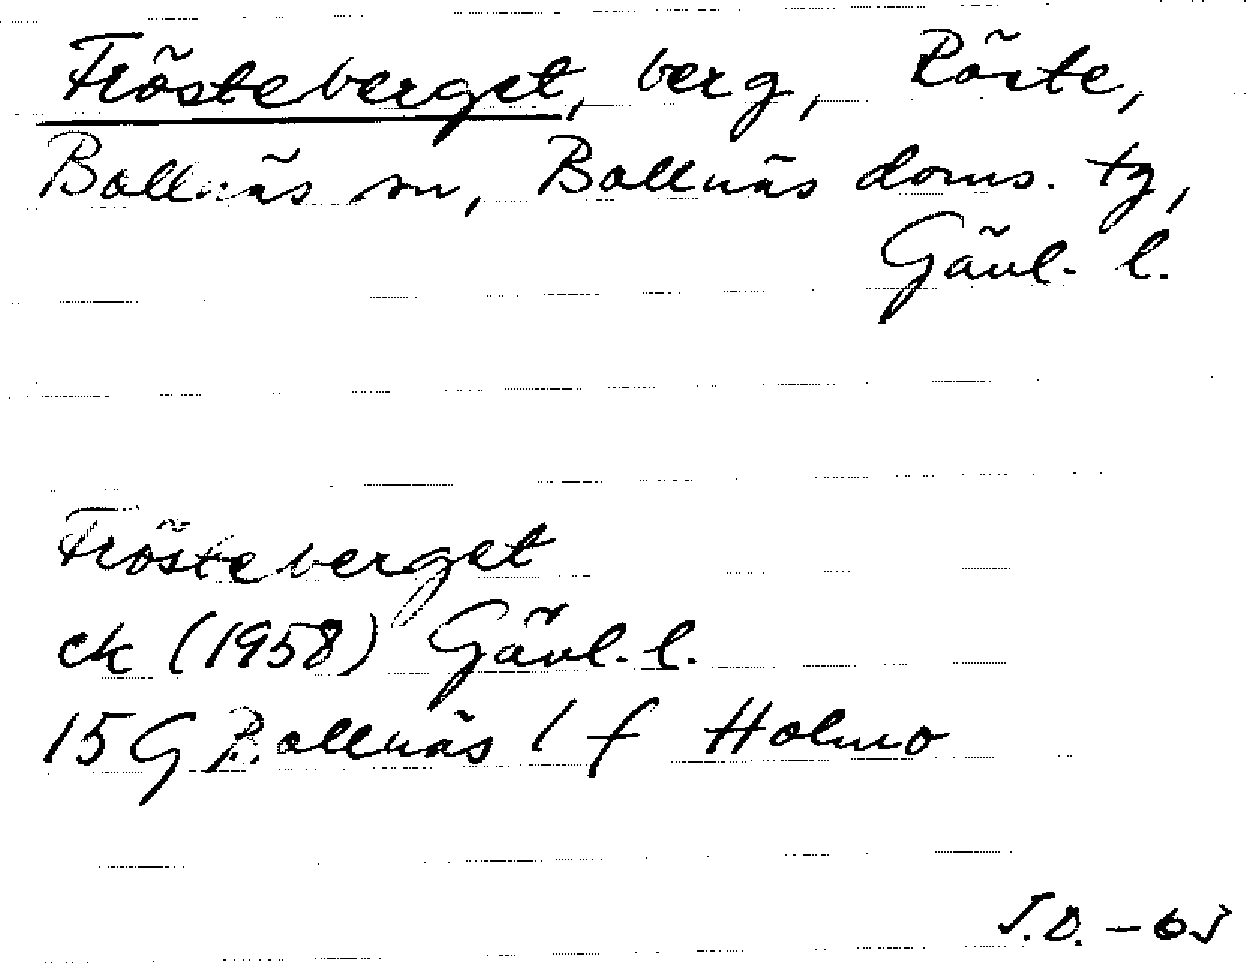 Frösteberget, berg, Röste,
Bollnäs sn, Bollnäs doms. tg,
Gävl. l.
Frösteberget
ek (1958) Gävl. l.
15G Bollnäs 1 f Holmo